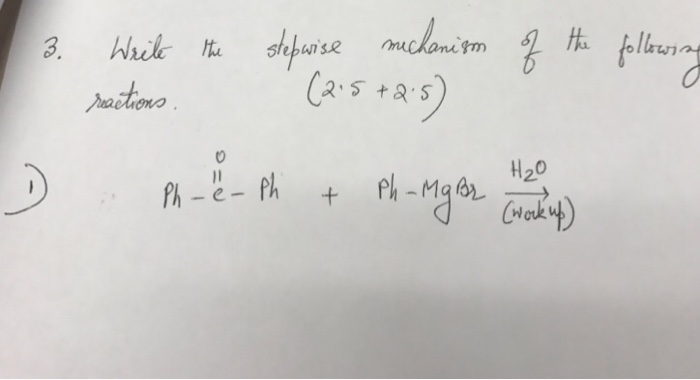 3. Write the stepwise mechanism of the following
reactions. (2.5 + 2.5)
O
H2O
1) Ph - C - Ph + Ph - MgBr
(work up)